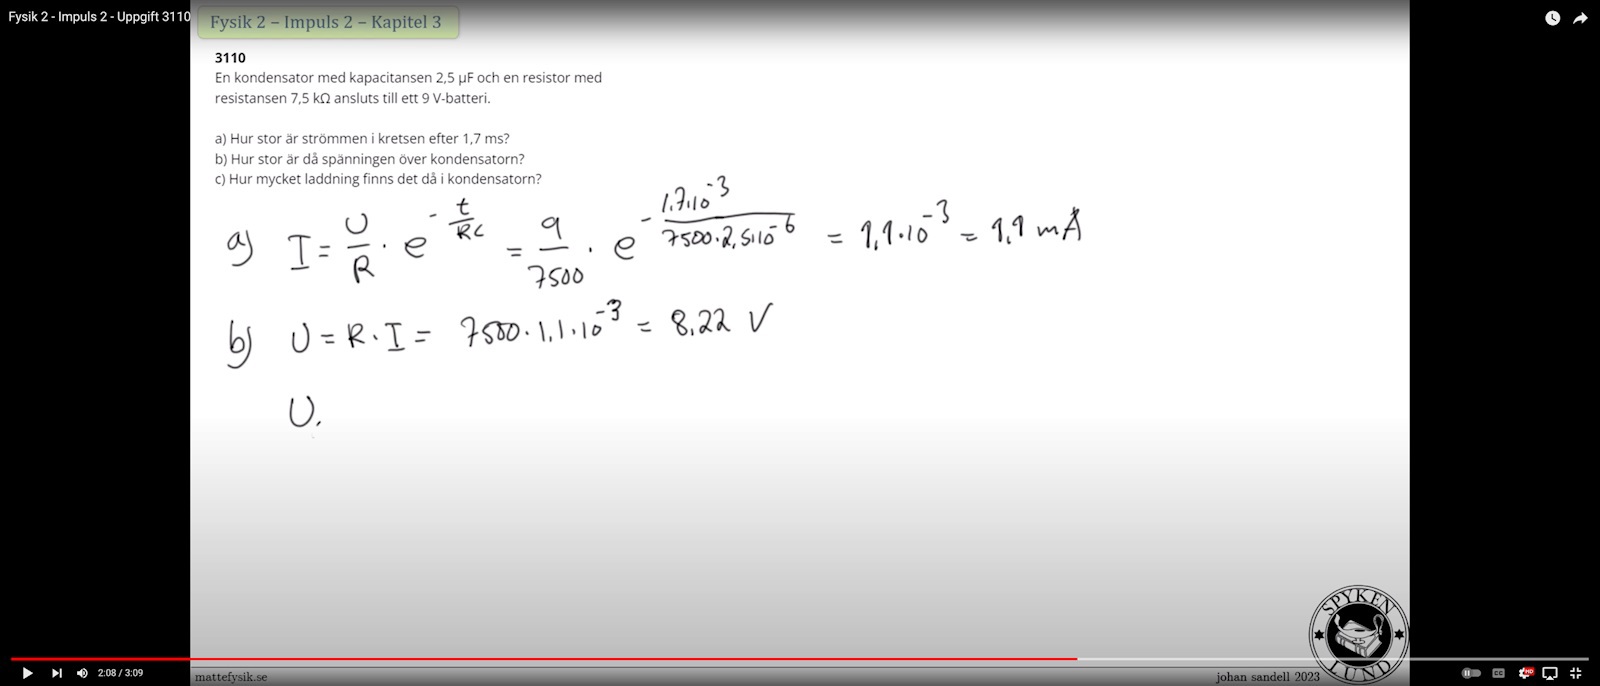 Fysik 2 - Impuls 2 - Uppgift 3110
Fysik 2 – Impuls 2 – Kapitel 3
3110
En kondensator med kapacitansen 2,5 µF och en resistor med
resistansen 7,5 kΩ ansluts till ett 9 V-batteri.
a) Hur stor är strömmen i kretsen efter 1,7 ms?
b) Hur stor är då spänningen över kondensatorn?
c) Hur mycket laddning finns det då i kondensatorn?
a) I = U/R · e^(-t/RC) = 9/7500 · e^(-1,7·10^-3/7500·2,5·10^-6) = 1,1·10^-3 = 1,1 mA
b) U = R·I = 7500·1,1·10^-3 = 8,22 V
U.
SPYKEN
LUND
2:08 / 3:09
CC
HD
mattefysik.se
johan sandell 2023